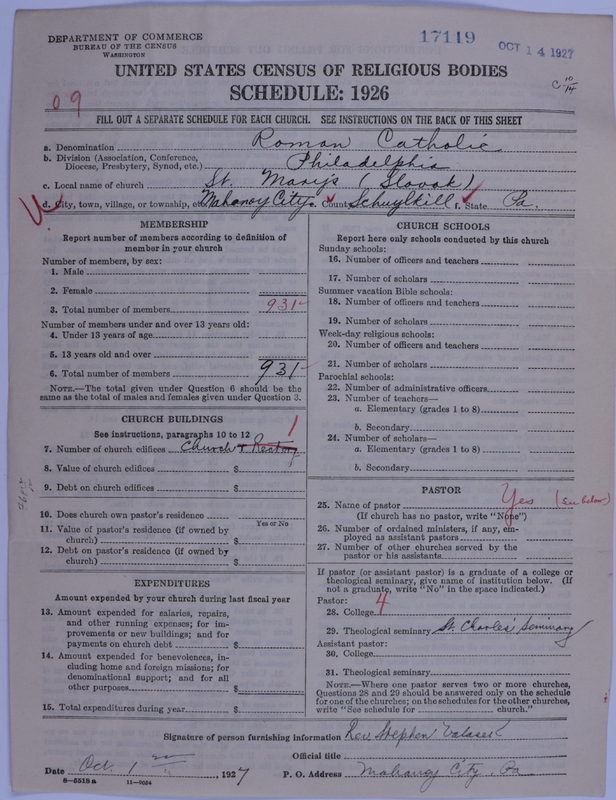 DEPARTMENT OF COMMERCE
BUREAU OF THE CENSUS
WASHINGTON
17119
OCT 14 1927
C 10/14
UNITED STATES CENSUS OF RELIGIOUS BODIES
SCHEDULE: 1926
09
FILL OUT A SEPARATE SCHEDULE FOR EACH CHURCH. SEE INSTRUCTIONS ON THE BACK OF THIS SHEET
a. Denomination Roman Catholic
b. Division (Association, Conference, Diocese, Presbytery, Synod, etc.) Philadelphia
c. Local name of church St. Mary's (Slovak)
d. City, town, village, or township, etc. Mahanoy City e. County Schuylkill f. State Pa.
MEMBERSHIP
Report number of members according to definition of
member in your church
Number of members, by sex:
1. Male
2. Female
3. Total number of members 931
Number of members under and over 13 years old:
4. Under 13 years of age
5. 13 years old and over
6. Total number of members 931
NOTE.—The total given under Question 6 should be
same as the total of males and females given under Question 3.
CHURCH BUILDINGS
See instructions, paragraphs 10 to 12
1
7. Number of church edifices Church + Rectory
8. Value of church edifices $
9. Debt on church edifices $
10. Does church own pastor's residence
Yes or No
11. Value of pastor's residence (if owned by
church) $
12. Debt on pastor's residence (if owned by
church) $
EXPENDITURES
Amount expended by your church during last fiscal year
13. Amount expended for salaries, repairs,
and other running expenses; for im-
provements or new buildings; and for
payments on church debt $
14. Amount expended for benevolences, in-
cluding home and foreign missions; for
denominational support; and for all
other purposes $
15. Total expenditures during year $
CHURCH SCHOOLS
Report here only schools conducted by this church
Sunday schools:
16. Number of officers and teachers
17. Number of scholars
Summer vacation Bible schools:
18. Number of officers and teachers
19. Number of scholars
Week-day religious schools:
20. Number of officers and teachers
21. Number of scholars
Parochial schools:
22. Number of administrative officers
23. Number of teachers—
a. Elementary (grades 1 to 8)
b. Secondary
24. Number of scholars—
a. Elementary (grades 1 to 8)
b. Secondary
PASTOR
25. Name of pastor Yes (See below)
(If church has no pastor, write "None")
26. Number of ordained ministers, if any, em-
ployed as assistant pastors
27. Number of other churches served by the
pastor or his assistants
If pastor (or assistant pastor) is a graduate of a college or
theological seminary, give name of institution below. (If
not a graduate, write "No" in the space indicated.)
Pastor:
28. College 4
29. Theological seminary St. Charles' Seminary
Assistant pastor:
30. College
31. Theological seminary
NOTE.—Where one pastor serves two or more churches,
Questions 28 and 29 should be answered only on the schedule
for one of the churches; on the schedules for the other churches,
write "See schedule for church."
Signature of person furnishing information Rev Stephen
Official title
Date Oct. 1, 1927 P. O. Address Mahanoy City, Pa
8—5518a 11—9084